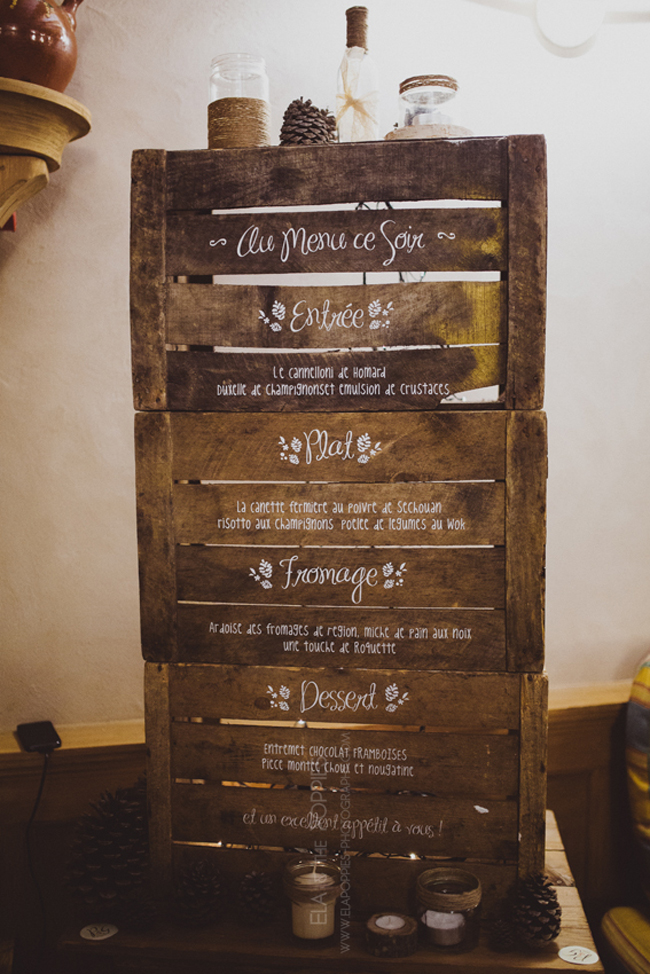 Au Menu ce Soir
Entrée
Le cannelloni de Homard
Duxelle de champignonset emulsion de crustaces
Plat
La canette fermiere au poivre de Sechouan
risotto aux champignons poelee de legumes au Wok
Fromage
Ardoise des fromages de region, miche de pain aux noix
une touche de Roquette
Dessert
Entremet CHOCOLAT FRAMBOISES
Piece montee choux et nougatine
et un excellent appétit à vous !